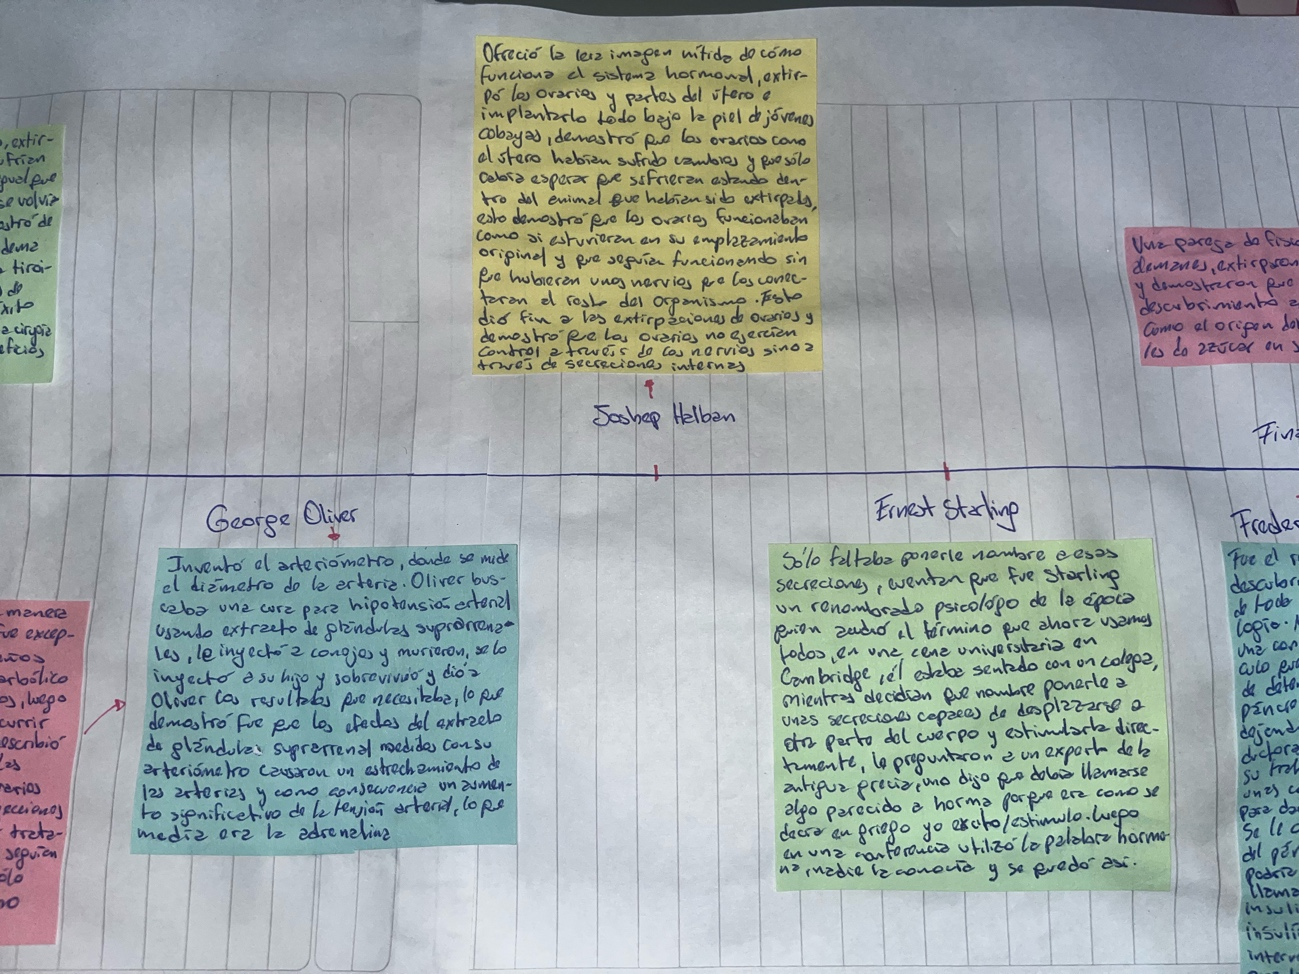 Ofreció la 1era imagen nítida de cómo
funciona el sistema hormonal, extir-
pó los ovarios y partes del útero e
implantarlo todo bajo la piel de jóvenes
cobayas, demostró que los ovarios como
el útero habían sufrido cambios y que sólo
cabía esperar que sufrieran estando den-
tro del animal que habían sido extirpado,
esto demostró que los ovarios funcionaban
como si estuvieran en su emplazamiento
original y que seguían funcionando sin
que hubieran unos nervios que los conec-
taran el resto del organismo. Esto
dió fin a las extirpaciones de ovarios y
demostró que los ovarios no ejercían
control a través de los nervios sino a
través de secreciones internas
Joshep Halban
, extir-
frían
igual que
se volvía
ostró de
dema
tiroi-
de
xito
a cirugía
eficios
Una pareja de fisi
alemanes, extirparon
y demostraron que
descubrimiento a
como el origen de
les de azúcar en s
Fina
George Oliver
Inventó el arteriómetro, donde se mide
el diámetro de la arteria. Oliver bus-
caba una cura para hipotensión arterial
usando extracto de glándulas suprarrena-
les, le inyectó a conejos y murieron, se lo
inyectó a su hijo y sobrevivió y dió a
Oliver los resultados que necesitaba, lo que
demostró fue que los efectos del extracto
de glándula suprarrenal medidos con su
arteriómetro causaron un estrechamiento de
las arterias y como consecuencia un aumen-
to significativo de la tensión arterial, lo que
medía era la adrenalina
manera
fue excep-
años
arbólico
os, luego
currir
escribió
las
varios
secciones
trata-
seguían
sólo
Ernest Starling
Sólo faltaba ponerle nombre a esas
secreciones, cuentan que fue Starling
un renombrado psicológo de la época
quien acuñó el término que ahora usamos
todos, en una cena universitaria en
Cambridge, él estaba sentado con un colega,
mientras decidían que nombre ponerle a
unas secreciones capaces de desplazarse a
otra parte del cuerpo y estimularla direc-
tamente, le preguntaron a un experto de la
antigua grecia, uno dijo que debía llamarse
algo parecido a horma porque era como se
decía en griego yo excito/estimulo. Luego
en una conferencia utilizó la palabra hormo-
na, nadie la conocía y se quedó así.
Freder
Fue el
descubri
de todo
logío.
una con
culo que
de dete
páncre
dejand
doctora
su trab
unas c
para da
Se le o
del pán
podría
llama
insuli
insuli
interv